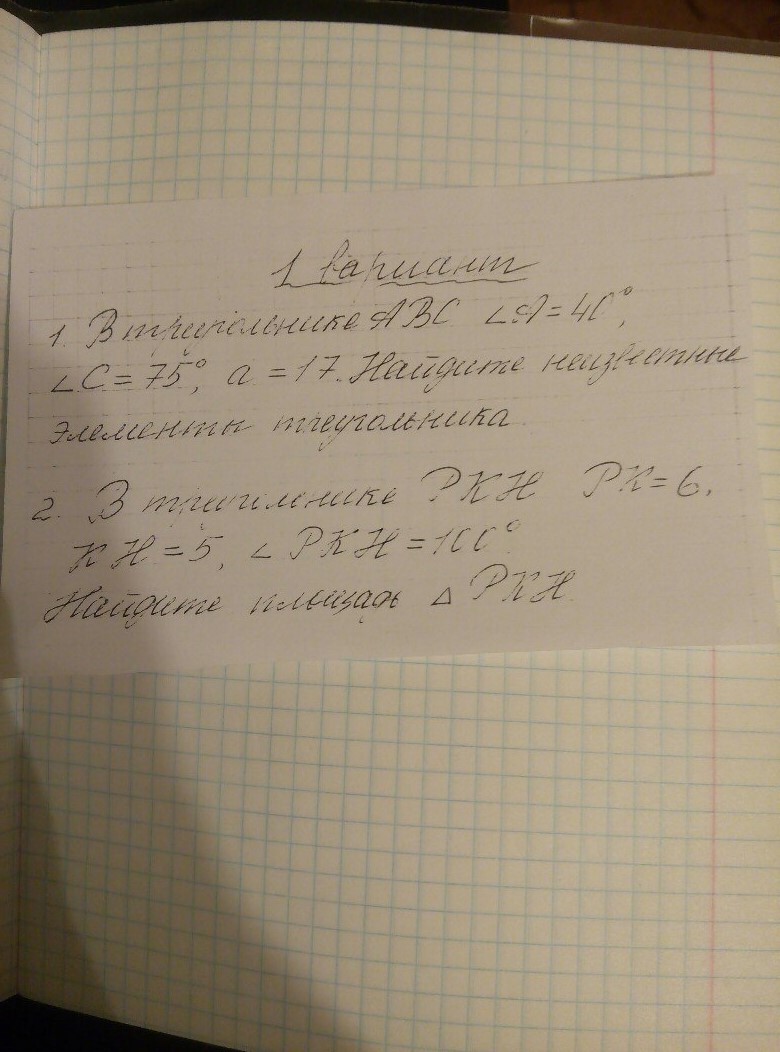 1 вариант
1. В треугольнике ABC ∠A = 40°,
∠C = 75°, a = 17. Найдите неизвестные
элементы треугольника.
2. В треугольнике PKH PK = 6,
KH = 5, ∠ PKH = 100°
Найдите площадь △ PKH.